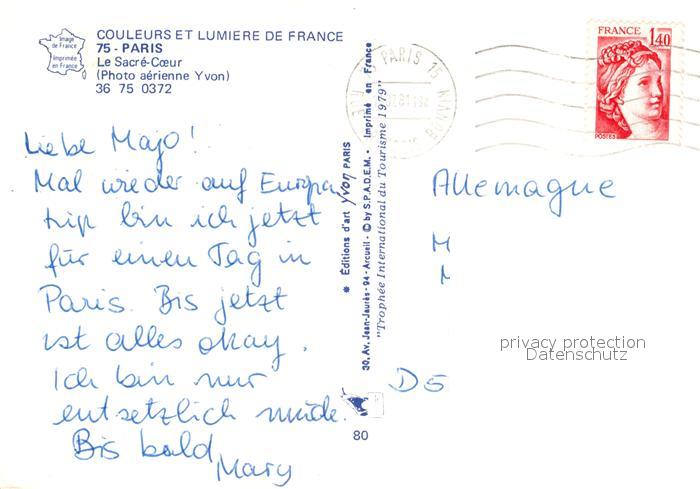 COULEURS ET LUMIERE DE FRANCE
75 - PARIS
Le Sacré-Cœur
(Photo aérienne Yvon)
36 75 0372
Image
de France
Imprimée
en France
Liebe Majo!
Mal wieder auf Europa
trip bin ich jetzt
für einen Tag in
Paris. Bis jetzt
ist alles okay.
Ich bin nur
entsetzlich müde.
Bis bald,
Mary
✱ Éditions d'art yvon PARIS
30, Av. Jean-Jaurès - 94 - Arcueil - © by S.P.A.D.E.M. - Imprimé en France
"Trophée International du Tourisme 1979"
80
PARIS 15
R. BONVIN
FRANCE 1,40
POSTES
Allemagne
M
D 5
privacy protection
Datenschutz